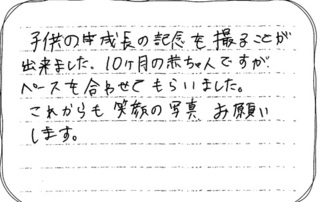 子供の成長の記念を撮ることが
出来ました、10ヶ月の赤ちゃんですが
ペースを合わせてもらいました。
これからも笑顔の写真 お願い
します。